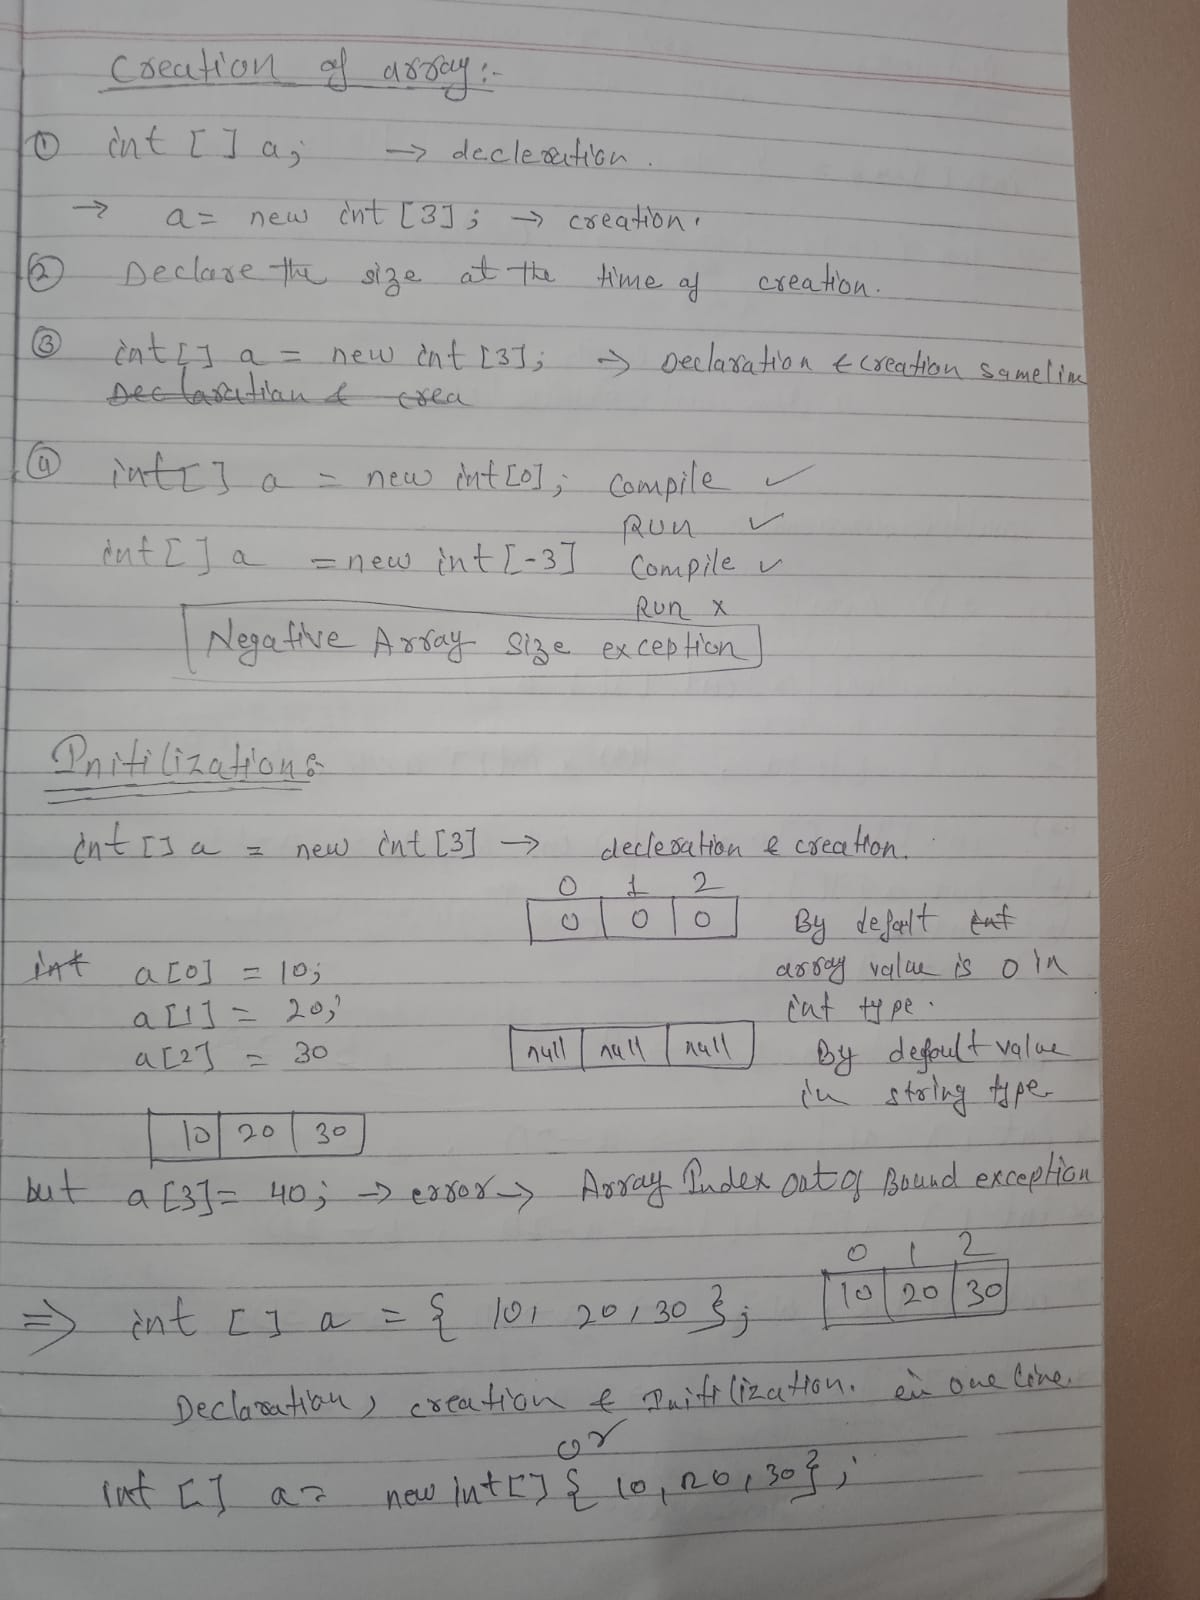 Creation of array :-
① int [ ] a; → decleration .
→ a = new int [3] ; → creation .
② Declare the size at the time of creation.
③ int [ ] a = new int [3]; → Declaration & creation same line
Declaration & crea
④ int [ ] a = new int [0] ; compile ✓
Run ✓
int [ ] a = new int [-3] compile ✓
Run x
Negative Array Size exception
Initilization :-
int [ ] a = new int [3] → decleration & creation.
0 1 2
0 0 0 By defalt int
int a[0] = 10; array value is 0 in
a[1] = 20; int type .
a[2] = 30 null null null By default value
in string type.
10 20 30
but a [3] = 40 ; → error → Array Index out of Bound exception
0 1 2
⇒ int [ ] a = { 10, 20, 30 } ; 10 20 30
Declaration, creation & Initilization. in one line.
or
int [ ] a = new int [ ] { 10, 20, 30 } ;